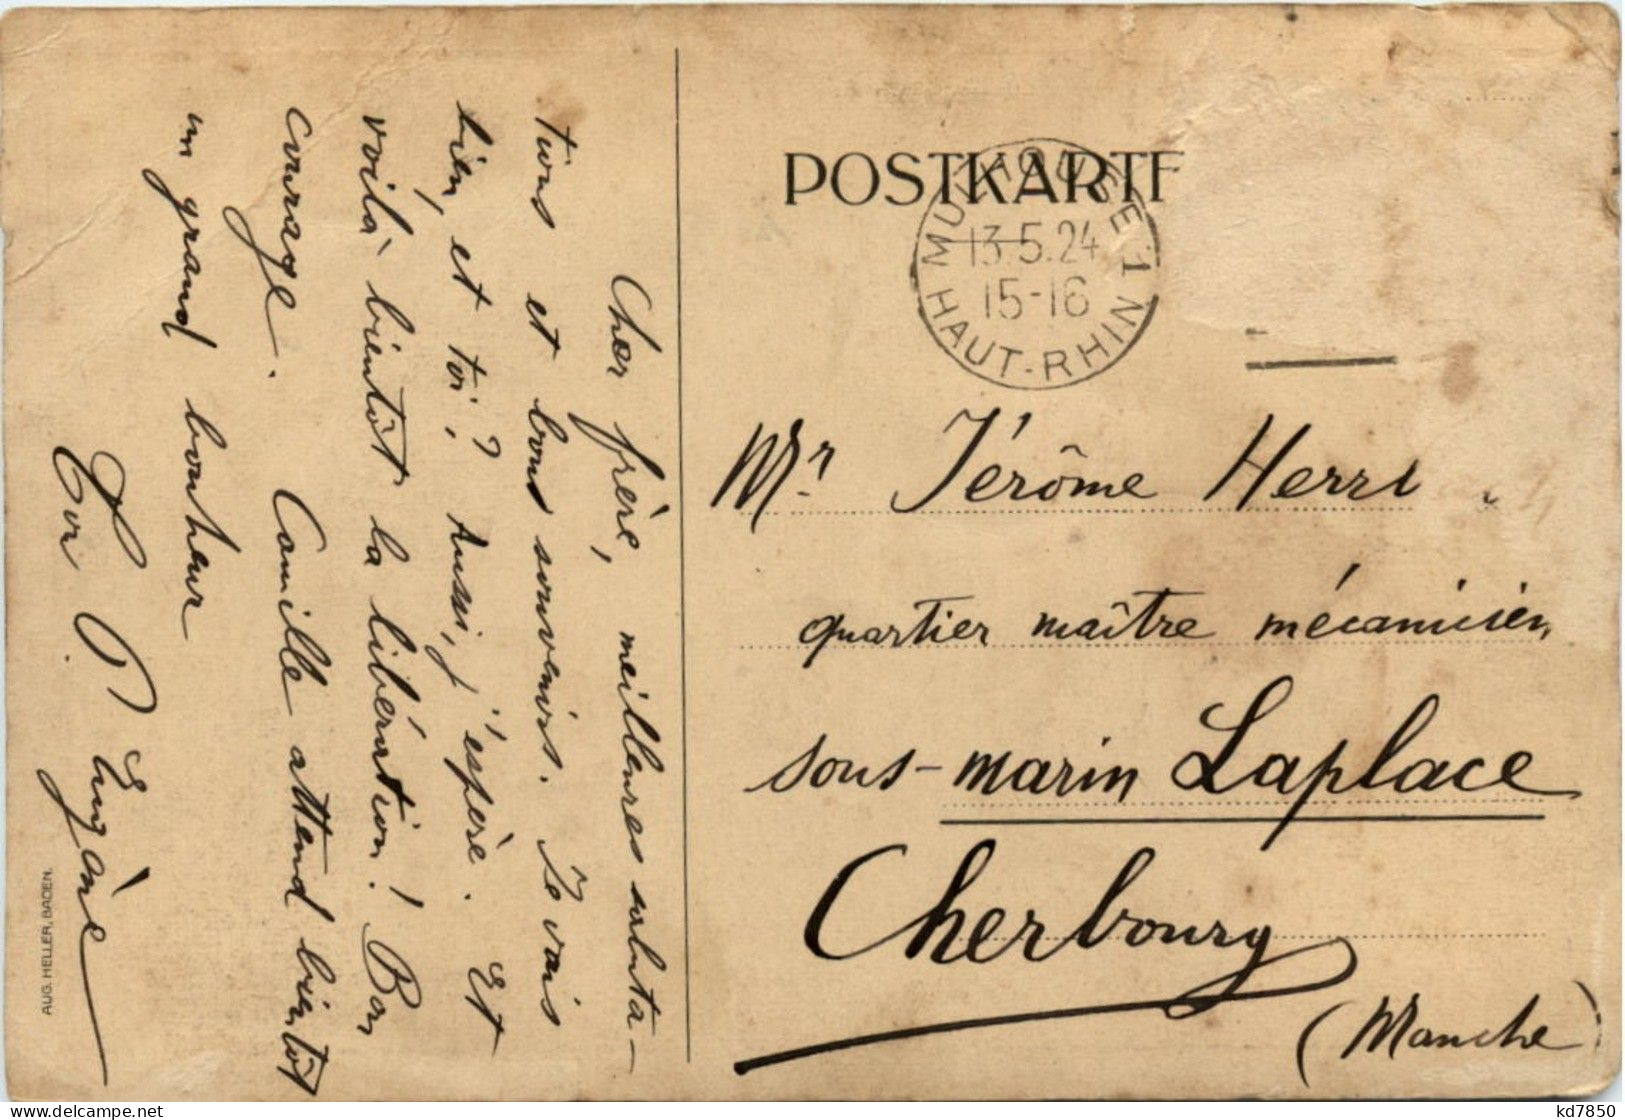 Cher frère, meilleures saluta-
tions et bons souvenirs. Je vais
bien, et toi? Aussi, j'espère. Et
voilà bientôt la libération! Bon
courage. Camille attend bientôt
un grand bonheur
Eugène
AUG. HELLER, BADEN.
POSTKARTE
MULHOUSE 1
13.5.24
15-16
HAUT-RHIN
Mr. Jérôme Herri
quartier maître mécanicien
sous-marin Laplace
Cherbourg
(Manche)
www.delcampe.net
kd7850